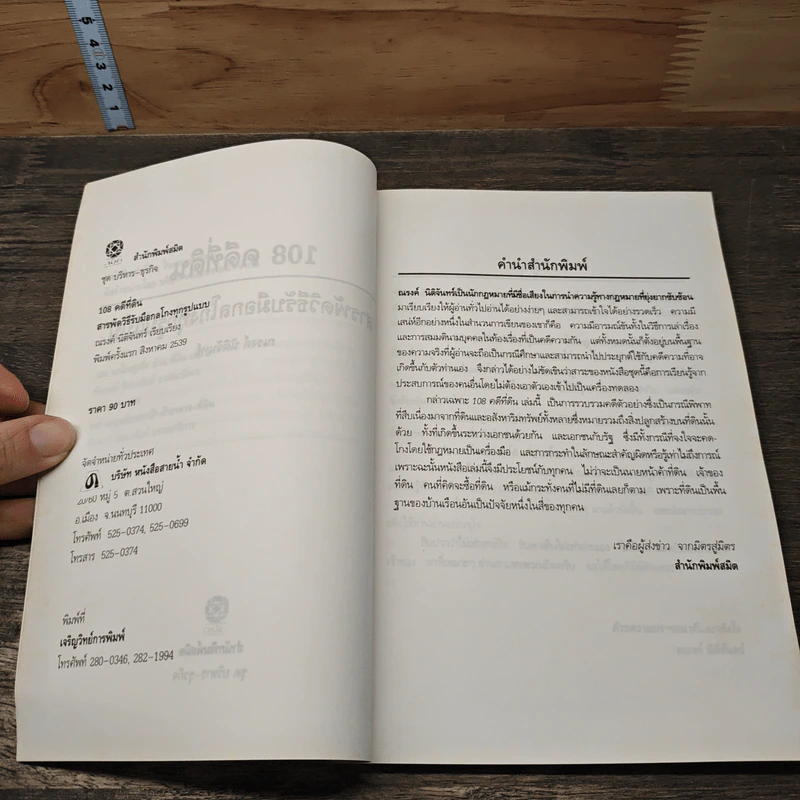 5
4
3
2
1
สำนักพิมพ์สมิต
ชุด บริหาร-ธุรกิจ
108 คดีที่ดิน
สารพัดวิธีรับมือกลโกงทุกรูปแบบ
ณรงค์ นิติจันทร์ เรียบเรียง
พิมพ์ครั้งแรก สิงหาคม 2539
ราคา 90 บาท
จัดจำหน่ายทั่วประเทศ
บริษัท หนังสือสายน้ำ จำกัด
20/60 หมู่ 5 ต.สวนใหญ่
อ.เมือง จ.นนทบุรี 11000
โทรศัพท์ 525-0374, 525-0699
โทรสาร 525-0374
พิมพ์ที่
เจริญวิทย์การพิมพ์
โทรศัพท์ 280-0346, 282-1994
คำนำสำนักพิมพ์
ณรงค์ นิติจันทร์เป็นนักกฎหมายที่มีชื่อเสียงในการนำความรู้ทางกฎหมายที่ยุ่งยากซับซ้อน
มาเรียบเรียงให้ผู้อ่านทั่วไปอ่านได้อย่างง่ายๆ และสามารถเข้าใจได้อย่างรวดเร็ว ความมี
เสน่ห์อีกอย่างหนึ่งในสำนวนการเขียนของเขาก็คือ ความมีอารมณ์ขันทั้งในวิธีการเล่าเรื่อง
และการสมมติตามบุคคลในท้องเรื่องที่เป็นคดีความกัน แต่ทั้งหมดนั้นก็ตั้งอยู่บนพื้นฐาน
ของความจริงที่ผู้อ่านจะถือเป็นกรณีศึกษาและสามารถนำไปประยุกต์ใช้กับคดีความที่อาจ
เกิดขึ้นกับตัวท่านเอง จึงกล่าวได้อย่างไม่ขัดเขินว่าสาระของหนังสือชุดนี้คือการเรียนรู้จาก
ประสบการณ์ของคนอื่นโดยไม่ต้องเอาตัวเองเข้าไปเป็นเครื่องทดลอง
กล่าวเฉพาะ 108 คดีที่ดิน เล่มนี้ เป็นการรวบรวมคดีตัวอย่างซึ่งเป็นกรณีพิพาท
ที่สืบเนื่องมาจากที่ดินและอสังหาริมทรัพย์ทั้งหลายซึ่งหมายรวมถึงสิ่งปลูกสร้างบนที่ดินนั้น
ด้วย ทั้งที่เกิดขึ้นระหว่างเอกชนด้วยกัน และเอกชนกับรัฐ ซึ่งมีทั้งกรณีที่จงใจจะคด-
โกงโดยใช้กฎหมายเป็นเครื่องมือ และการกระทำในลักษณะสำคัญผิดหรือรู้เท่าไม่ถึงการณ์
เพราะฉะนั้นหนังสือเล่มนี้จึงมีประโยชน์กับทุกคน ไม่ว่าจะเป็นนายหน้าค้าที่ดิน เจ้าของ
ที่ดิน คนที่คิดจะซื้อที่ดิน หรือแม้กระทั่งคนที่ไม่มีที่ดินเลยก็ตาม เพราะที่ดินเป็นพื้น
ฐานของบ้านเรือนอันเป็นปัจจัยหนึ่งในสี่ของทุกคน
เราคือผู้ส่งข่าว จากมิตรสู่มิตร
สำนักพิมพ์สมิต